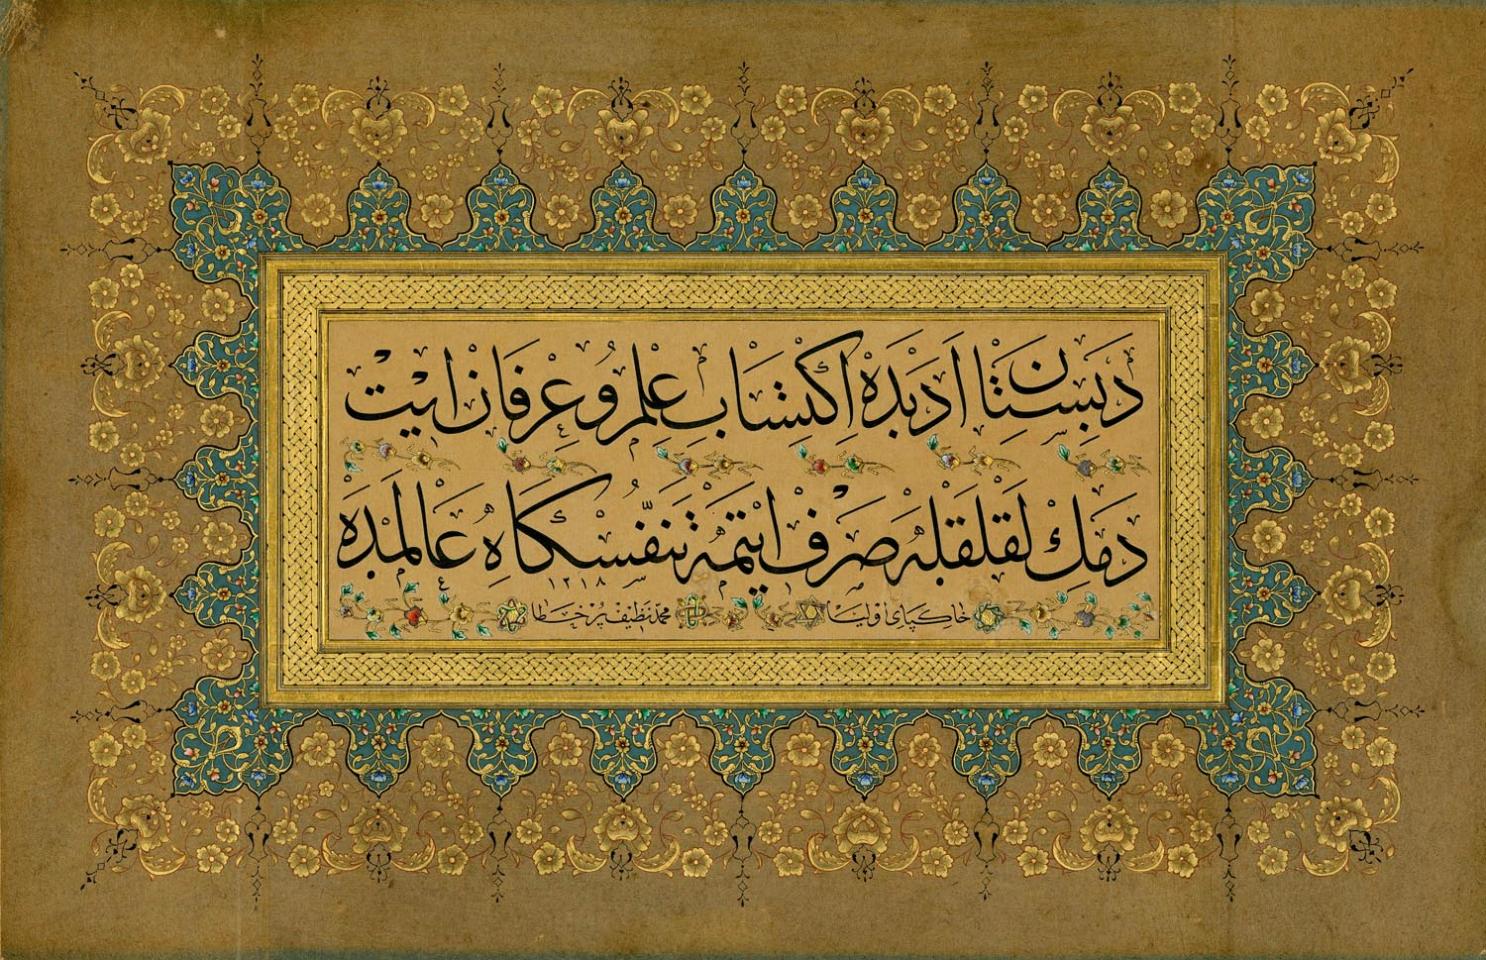 دَبِسْتَانِ اَدَبْدَهْ اِكْتِسَابِ عِلْمُ وُ عِرْفَانْ ايتْ
دَمِكْ لَقْلَقَلَهْ صَرْف ايتْمَهْ تَنَفُّسْكَاهِ عَالَمْدَهْ
١٢١٨
خاكپاى اوليا
محمد نظيف پر خطا